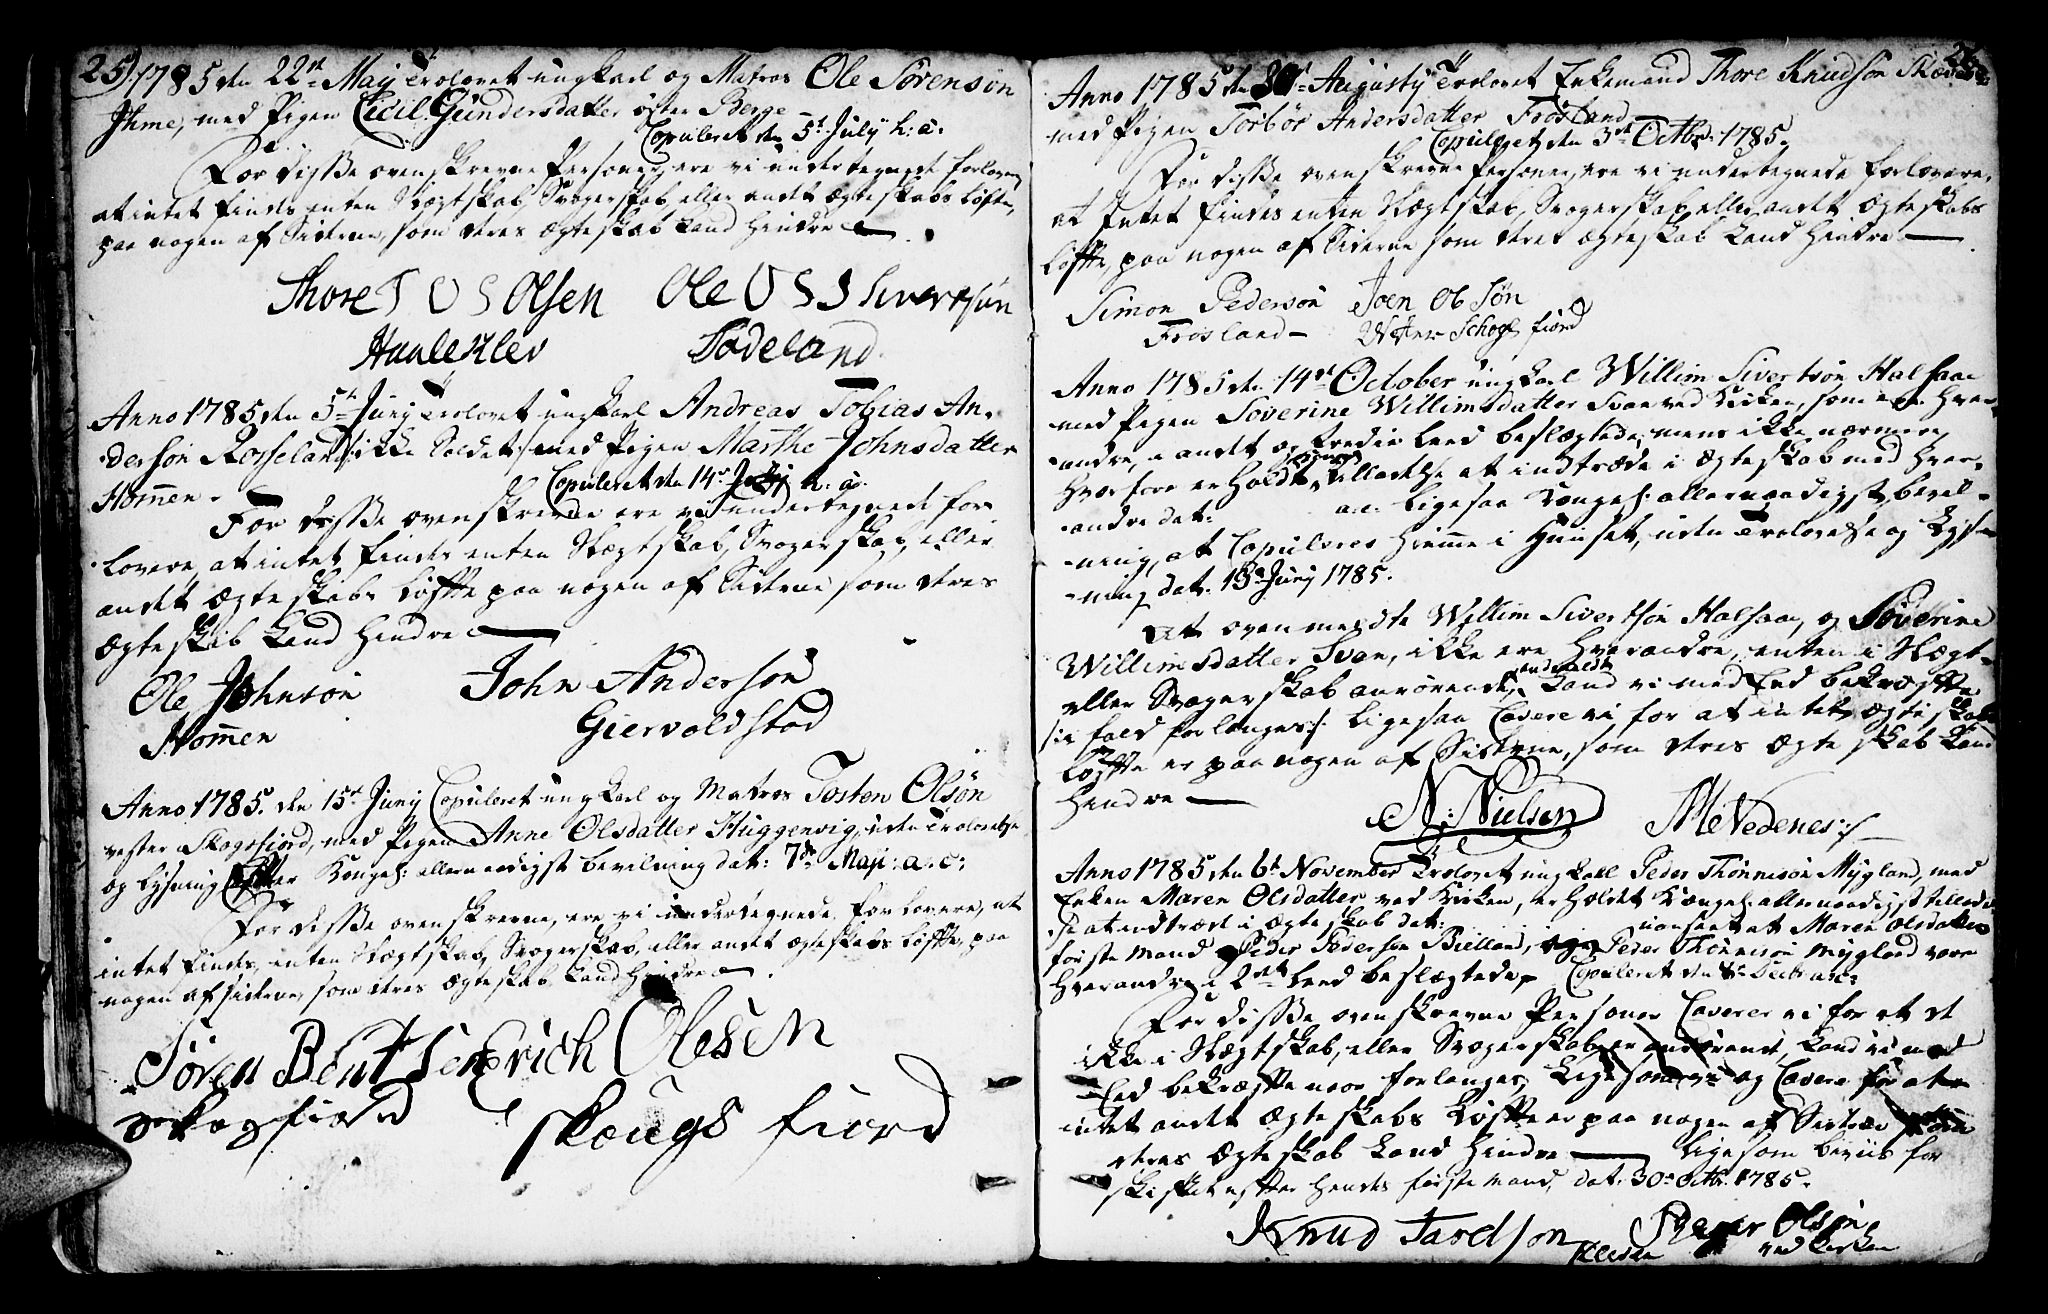 25) 1785 den 22de May Troloved ungkarl og Matros Ole Sørensøn
Ihme, med Pigen Cicil Gundersdatter øfre Berge
Copuleret den 5t July h: a:
For disse ovenskrevne Personer, ere vi undertegnede forlovere
at intet findes enten Slægtskab, Svogerskab eller andet ægteskabs løfte,
paa nogen af Siderne, som deres ægteskab kand hindre
Thore T O S Olsen Ole O S S Sivertsøn
Haaleklev Sodeland
Anno 1785 den 5te Juny Trolovet ungkarl Andreas Tobias An-
dersøn Rosseland /: ikke Soldat :/ med Pigen Marthe Johnsdatter
Homen.
Copuleret den 14de h: a:
For disse ovenskrevne ere vi undertegnede for-
lovere, at intet findes enten Slægtskab, Svogerskab, eller
andet Ægteskabs Løffte paa nogen af Siderne som deres
Ægteskab kand hindre
Ole Johnsøn John Andersøn
Homen Giervoldstad
Anno 1785 den 15de Juny Copuleret ungkarl og Matros Tosten Olsøn
vester Skogsfiord, med Pigen Anne Olsdatter Huggenvig, uden Trolovelse
og Lysning efter Kongel: allernaadigst bevilning dat: 7de Maji: a: c:
For disse ovenskrevne, ere vi undertegnede Forlovere, at
intet findes, enten Slægtskab, Svogerskab, eller andet ægteskabs Løffte, paa
nogen af siderne, som deres Ægteskab kand hindre
Søren Bentsen Erich Olesen
Skogfiord Skougs fiord
26
Anno 1785 den Augusty Trolovet Enkemand Thore Knudsøn
med Pigen Torbør Andersdatter Frøsland
Copuleret den 3de Octbr: 1785.
For disse ovenskrevne Personer, ere vi undertegnede Forlovere,
at Intet findes enten Slægtskab, Svogerskab eller andet Ægteskabs
Løffte, paa nogen af Siderne som deres Ægteskab kand hindre
Simon Pedersøn Joen Olsøn
Frøsland Schogsfiord
Anno 1785 den 14de October ungkarl Willim Sivertsøn Halsaa
med Pigen Soverine Willimsdatter Svan ved Kirken, som ere hver-
andre, i andet og tredie Leed beslægtede, mens ikke nærmere,
hvorfore er holdt Tilladelse at indtræde i Ægteskab med hver-
andre dat: a: c: ligesaa Kongel: allernaadigst bevil-
ning, at Copuleres hiemme i Huuset, uden Trolovelse og Lysn-
ning dat: 13de Juny 1785.
At ovenmeldte Willim Sivertsøn Halsaa, og Soverine
Willimsdatter Svan, ikke ere hverandre, enten i Slægt-
eller Svogerskab anrørende, kand vi med Eed bekræffte
/: i fald forlanges :/ ligesaa Cavere vi for at intet ægteskabs
Løffte er paa nogen af Siderne, som deres Ægteskab kand
hindre
N: Nielsen M Vedenes
Anno 1785 den 6te November Trolovet ungkarl Peder Thønnesøn Mygland, med
Enken Maren Olsdatter ved Kirken, er holdet Kongel: allernaadigst tillad-
se at indtræde i ægteskab dat: uanseet at Maren Olsdatters
første mand Peder Pedersøn Bielland, og Peder Thønnesøn Mygland vare
hverandre i 2det Leed beslægtede, Copuleret den Decbr a: c:
For disse ovenskrevne Personer Caverer vi for at de
ikke i Slægtskab, eller Svogerskab er anrørende, kand vi med
Eed bekræffte naar forlanges, ligesom vi og Cavere for at
intet andet Ægteskabs Løffte er paa nogen af Siderne som
deres Ægteskab kand hindre ligesom beviis for
Skifte efter hendes første mand, dat: 30te Octbr: 1785.
Knud Olsøn
ved Kirken